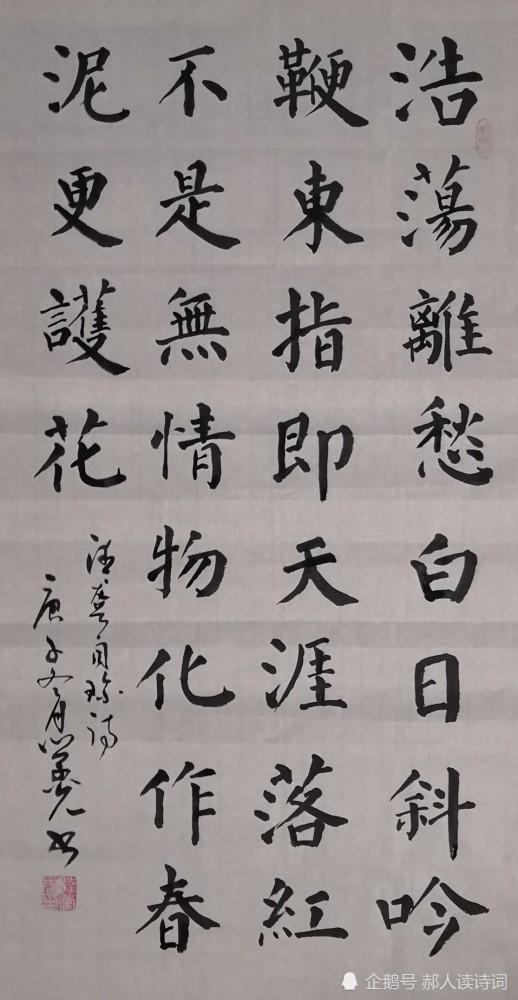 浩蕩離愁白日斜吟
鞭東指即天涯落紅
不是無情物化作春
泥更護花
清龔自珍詩
庚子冬月
企鹅号 郝人读诗词